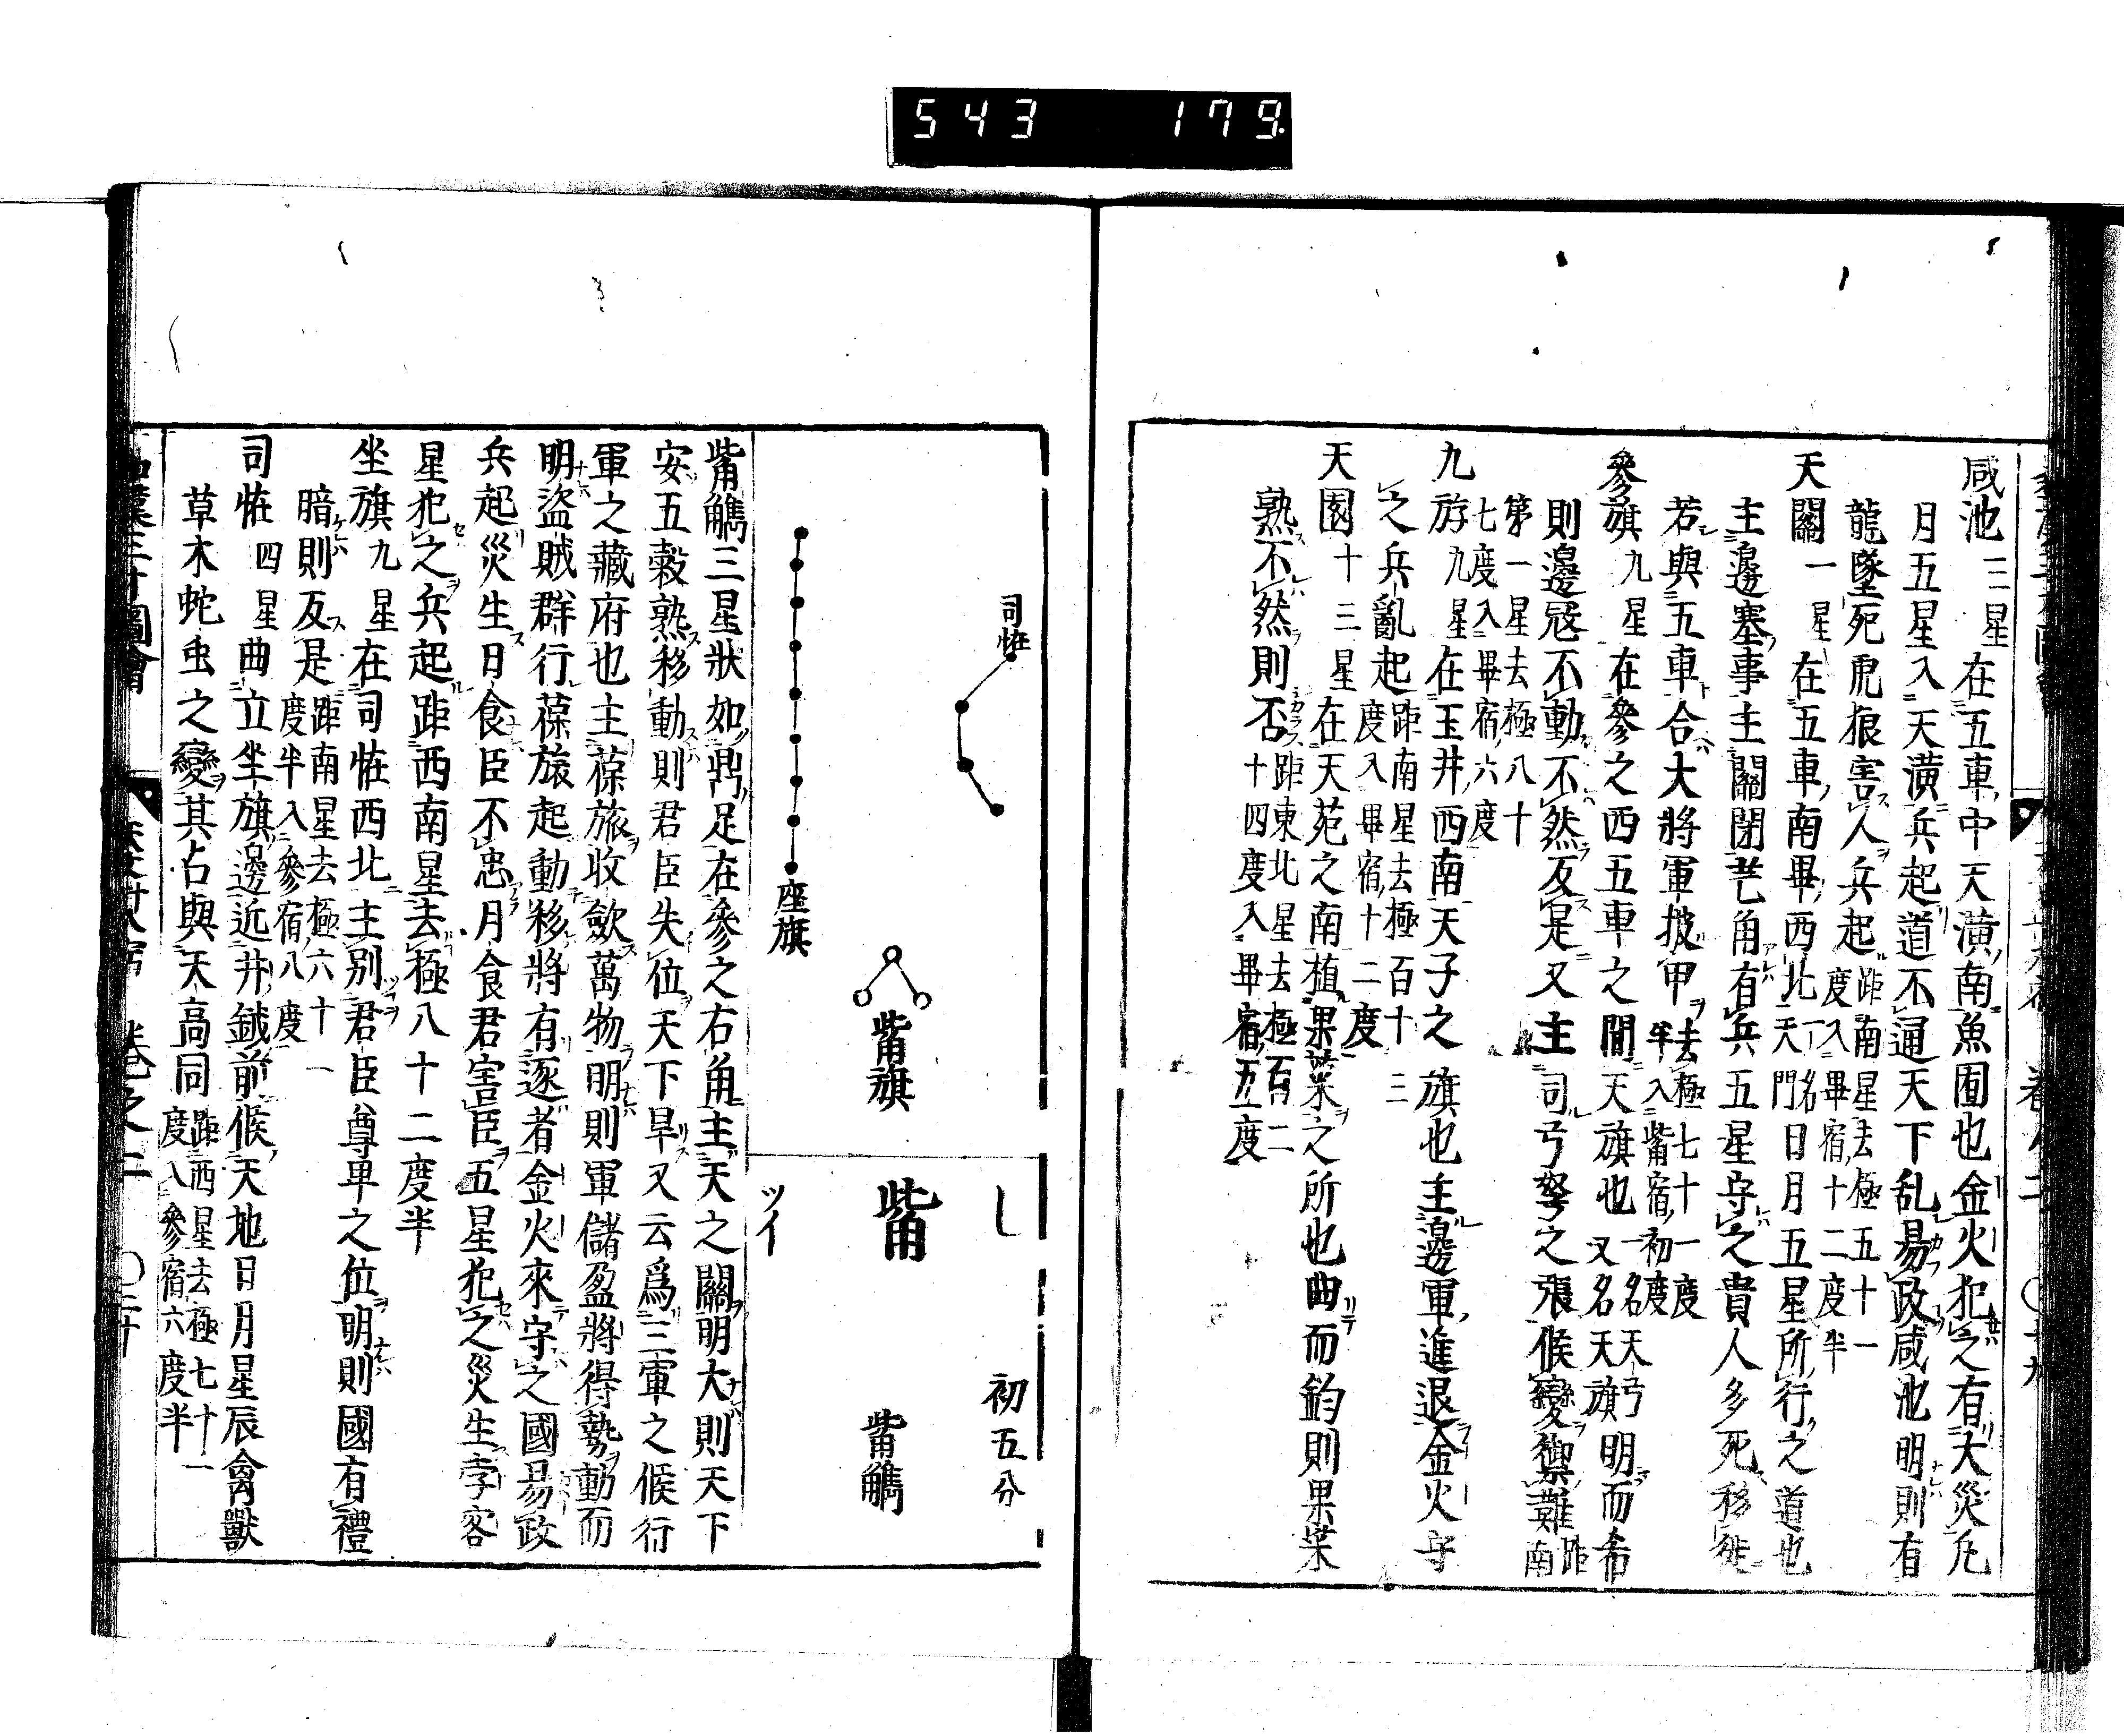 543 179
咸池 三星 在五車中天潢南魚囿也金火犯之有大災凡
月五星入天潢兵起道不通天下乱易政咸池明則有
龍墜死虎狼害人兵起 距南星去極五十一
度入畢宿十二度半
天關 一星 在五車南畢西北 一名天門 日月五星所行之道也
主邊塞事主關閉芒角有兵五星守之貴人多死移徙
若與五車合大將軍披甲 去極七十一度
半入觜宿初度
參旗 九星 在參之西五車之間天旗也 一名天弓
又名天旗 明而希
則邊寇不動不然反是又主司弓弩之張候變禦難 距南
第一星去極八十
七度入畢宿六度
九游 九星 在玉井西南天子之旗也主邊軍進退金火守
之兵亂起 距南星去極百十三
度入畢宿十二度
天園 十三星 在天苑之南植果菜之所也曲而鈎則果菜
熟不然則否 距東北星去極百二
十四度入畢宿五度
司怪
座旗
觜旗
觜
ツイ
初五分
觜觿
觜觿三星狀如鼎足在參之右角主天之關明大則天下
安五穀熟移動則君臣失位天下旱又云爲三軍之候行
軍之藏府也主葆旅收歛萬物明則軍儲盈將得勢動而
明盜賊群行葆旅起動移將有逐者金火來守之國易政
兵起災生日食臣不忠月食君害臣五星犯之災生孛客
星犯之兵起距西南星去極八十二度半
坐旗 九星 在司怪西北主別君臣尊卑之位明則國有禮
暗則反是 距南星去極六十一
度半入參宿八度
司怪 四星 曲立坐旗邊近井鉞前候天地日月星辰禽獸
草木蛇虫之變其占與天高同 距西星去極七十一
度入參宿六度半